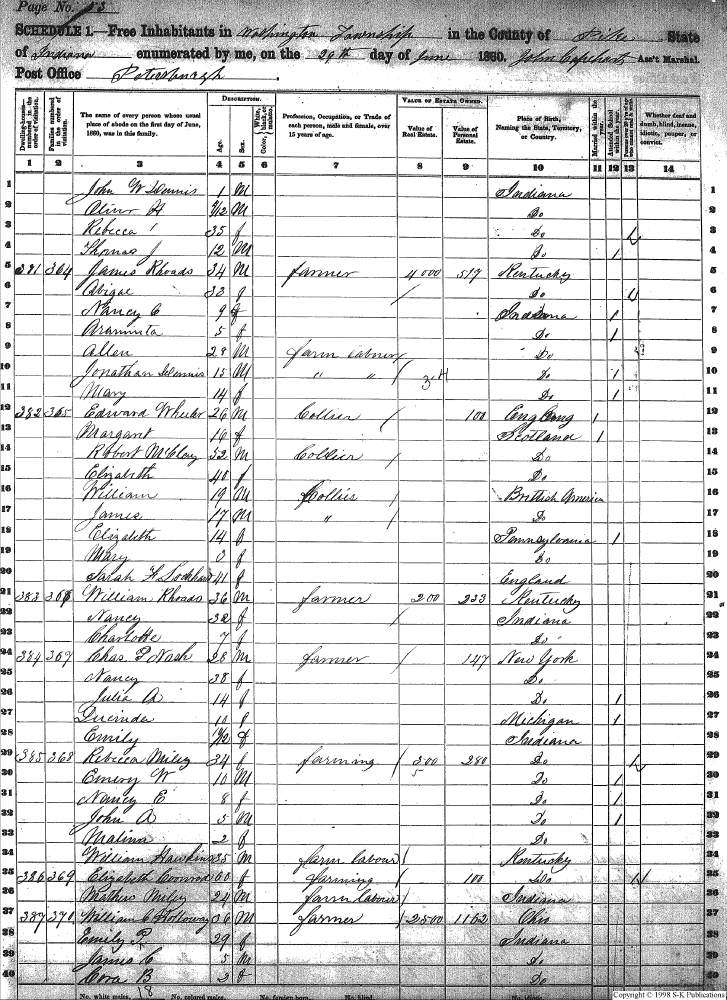 Page No. 53
SCHEDULE 1.—Free Inhabitants in Washington Township in the County of Pike State
of Indiana enumerated by me, on the 29th day of June 1860. John Capehart Ass't Marshal.
Post Office Petersburgh
Dwelling-houses—numbered in the order of visitation.
Families numbered in the order of visitation.
The name of every person whose usual place of abode on the first day of June, 1860, was in this family.
DESCRIPTION.
Age.
Sex.
Profession, Occupation, or Trade of each person, male and female, over 15 years of age.
VALUE OF ESTATE OWNED.
Value of Real Estate.
Value of Personal Estate.
Place of Birth, Naming the State, Territory, or Country.
Married within the year.
Attended School within the year.
Whether deaf and dumb, blind, insane, idiotic, pauper, or convict.
1 2 3 4 5 6 7 8 9 10 11 12 13 14
1 John W Dennis 1 M Indiana 1
2 Oliver H /12 M Do 2
3 Rebecca 35 f Do 3
4 Thomas J 12 M Do / 4
5 381 364 James Rhoads 34 M farmer 4000 517 Kentucky 5
6 Abigal 33 f / Do 6
7 Nancy C 9 f Indiana / 7
8 Araminta 5 f Do / 8
9 Allen 28 M farm laborer Do 9
10 Jonathan Dennis 15 M " " Do / 10
11 Mary 14 f Do / 11
12 382 365 Edward Wheeler 26 M Collier / 100 Eng 1 12
13 Margaret 16 f Scotland 1 13
14 Robert McClay 52 M Collier / Do 14
15 Elizabeth 40 f Do 15
16 William 19 M Collier / Brittish America 16
17 James 17 M " / Do 17
18 Elizabeth 14 f Pennsylvania / 18
19 Mary f Do 19
20 Sarah F Lockhard 41 f England 20
21 383 366 William Rhoads 36 M farmer 200 233 Kentucky 21
22 Nancy 32 f / Indiana 22
23 Charlotte 7 f Do 23
24 384 367 Chas P Nash 28 M farmer / 147 New York 24
25 Nancy 38 f Do 25
26 Julia A 14 f Do / 26
27 Lucinda 10 f Michigan / 27
28 Emily /12 f Indiana 28
29 385 368 Rebecca Miley 34 f farming / 300 280 Do 29
30 Emery W 10 M Do / 30
31 Nancy E 8 f Do / 31
32 John A 5 M Do / 32
33 Malina 2 f Do 33
34 William Hawkins 35 M farm labour / Kentucky 34
35 386 369 Elizabeth 60 f farming / 100 Do 35
36 Mathew Miley 24 M farm labour / Indiana 36
37 387 370 William C Holloway 36 M farmer / 2500 1162 Ohio 37
38 Emily P 29 f Indiana 38
39 James C 5 M Do 39
40 Cora B 2 f Do 40
No. white males, 18 No. colored males, No. foreign born, No. blind,
Copyright © 1998 S-K Publications